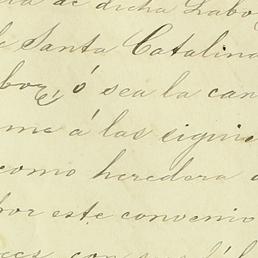 de dicha Labo
Santa Catalina
bor, ó sea la can
me á las siguie
como heredera
por este convenio
con